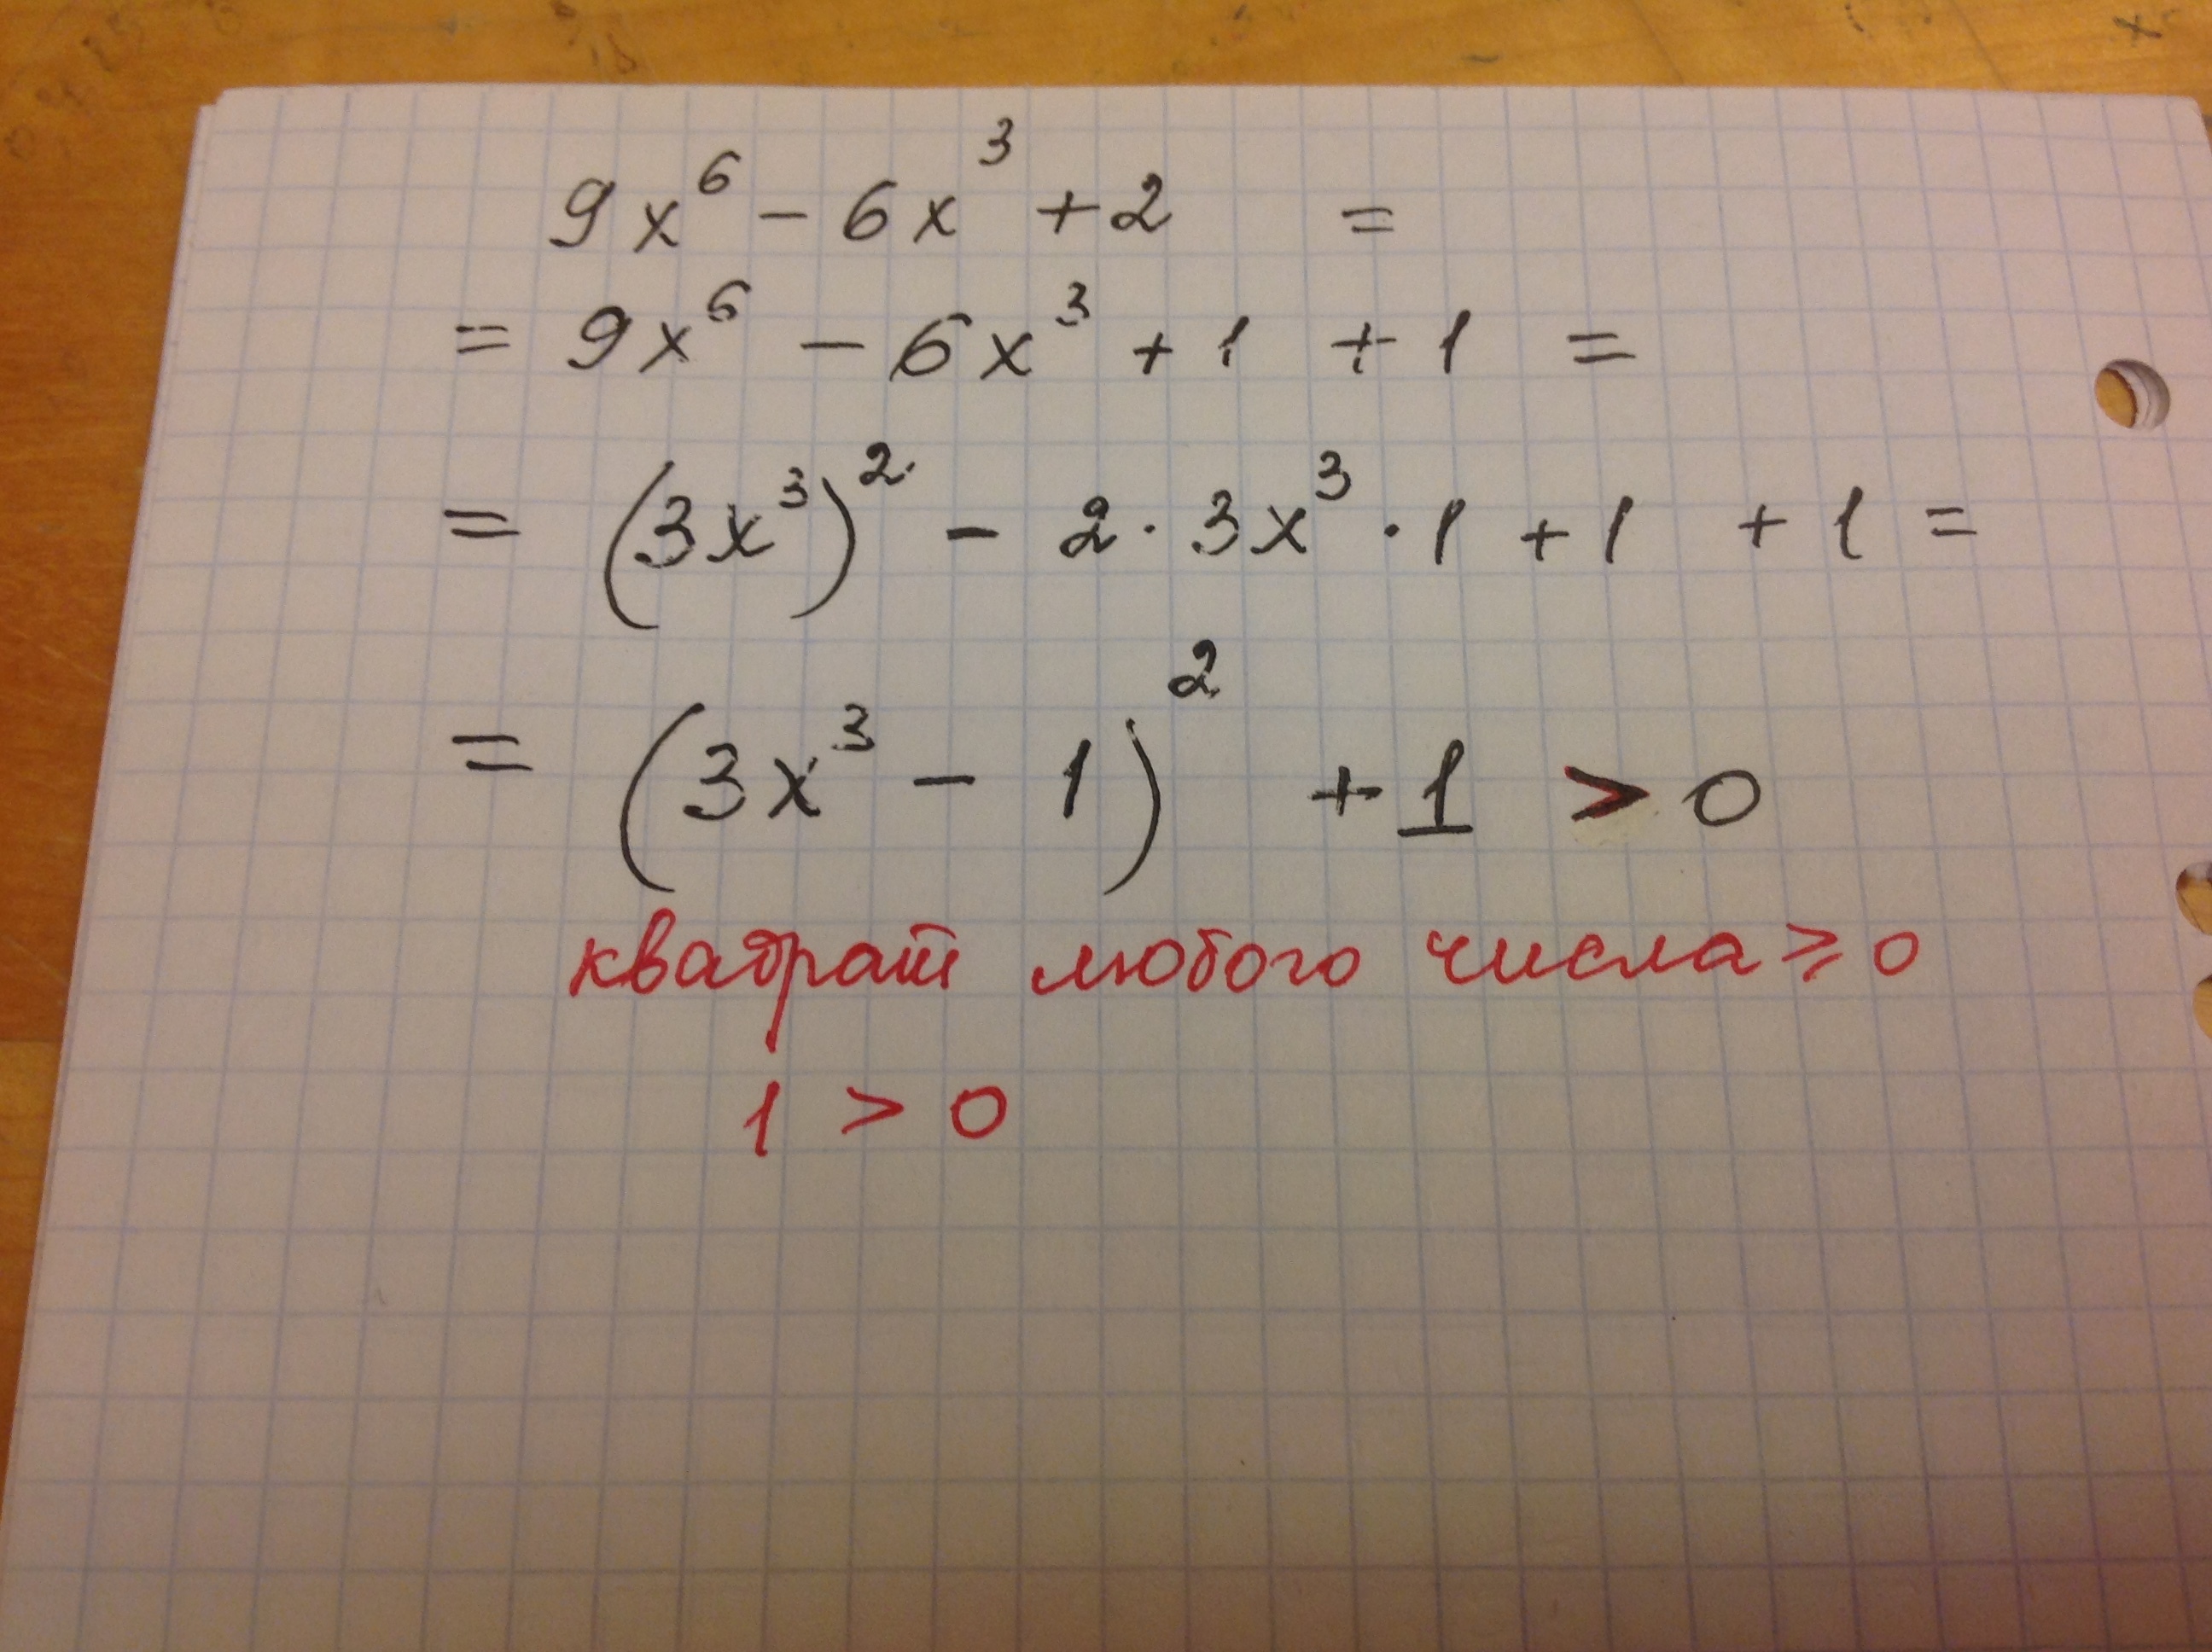 9x⁶ − 6x³ + 2 =
= 9x⁶ − 6x³ + 1 + 1 =
= (3x³)² − 2 · 3x³ · 1 + 1 + 1 =
= (3x³ − 1)² + 1 > 0
квадрат любого числа ≥ 0
1 > 0